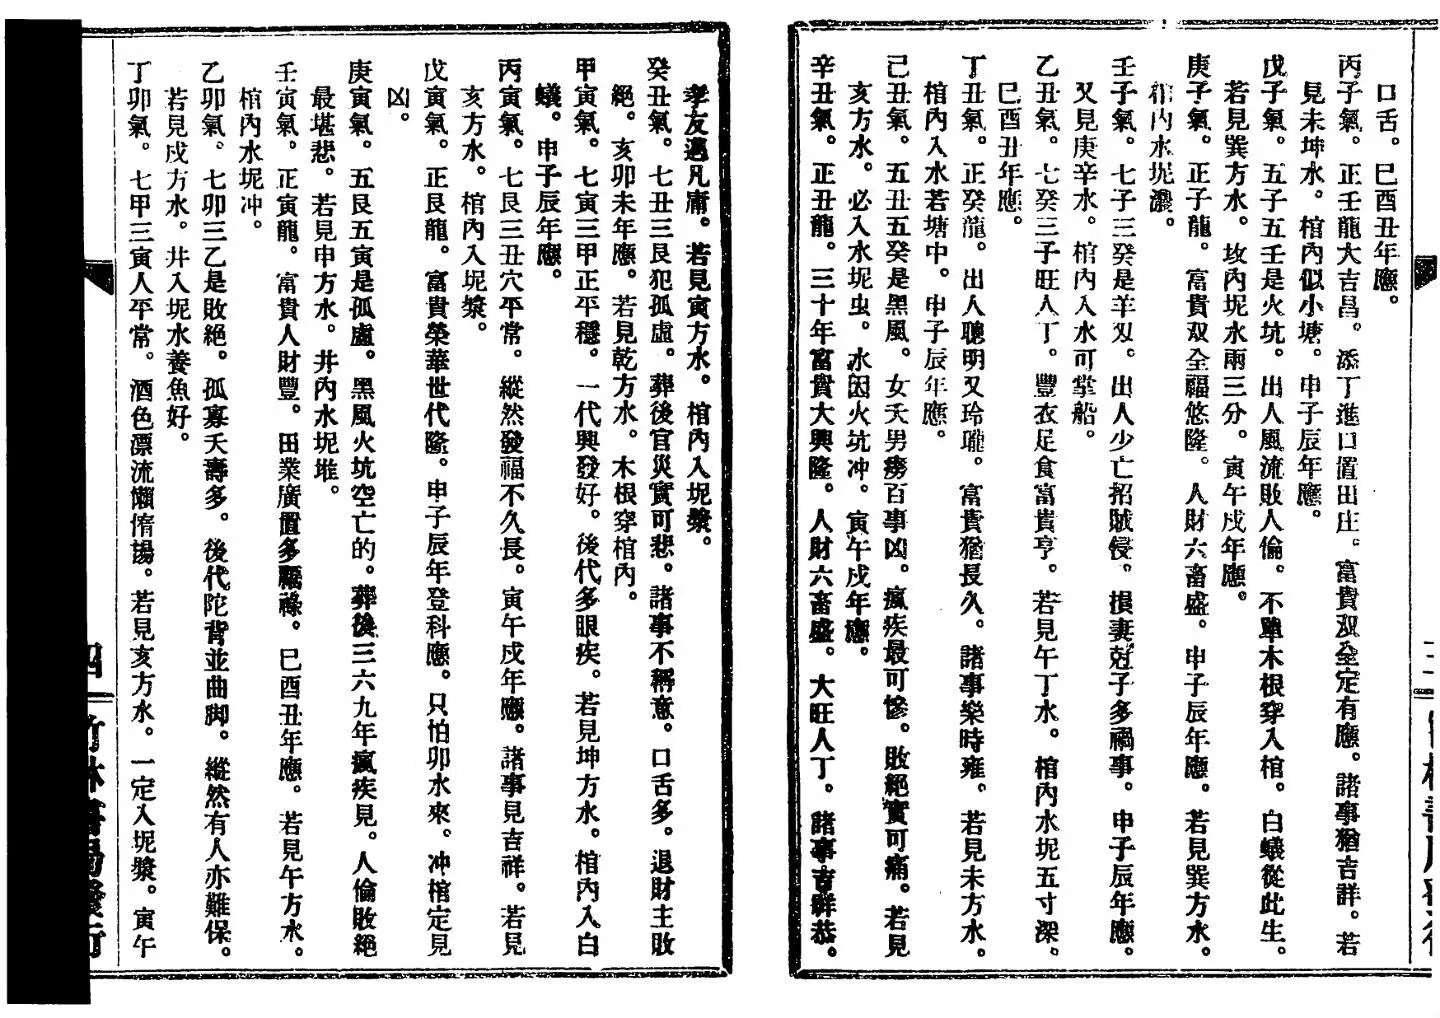 口舌。巳酉丑年應。
丙子氣。正壬龍大吉昌。添丁進口置田庄。富貴双全定有應。諸事猶吉祥。若
見未坤水。棺內似小塘。申子辰年應。
戊子氣。五子五壬是火坑。出人風流敗人倫。不單木根穿入棺。白蟻從此生。
若見巽方水。坟內坭水兩三分。寅午戌年應。
庚子氣。正子龍。富貴双全福悠隆。人財六畜盛。申子辰年應。若見巽方水。
棺內水坭濃。
壬子氣。七子三癸是羊刄。出人少亡招賊侵。損妻尅子多禍事。申子辰年應。
又見庚辛水。棺內入水可掌船。
乙丑氣。七癸三子旺人丁。豐衣足食富貴亨。若見午丁水。棺內水坭五寸深。
巳酉丑年應。
丁丑氣。正癸龍。出人聰明又玲瓏。富貴猶長久。諸事樂時雍。若見未方水。
棺內入水若塘中。申子辰年應。
己丑氣。五丑五癸是黑風。女夭男癆百事凶。瘋疾最可慘。敗絕實可痛。若見
亥方水。必入水坭虫。水因火坑冲。寅午戌年應。
辛丑氣。正丑龍。三十年富貴大興隆。人財六畜盛。大旺人丁。諸事吉群恭。
孝友過凡庸。若見寅方水。棺內入坭漿。
癸丑氣。七丑三艮犯孤虛。葬後官災實可悲。諸事不稱意。口舌多。退財主敗
絕。亥卯未年應。若見乾方水。木根穿棺內。
甲寅氣。七寅三甲正平穩。一代興發好。後代多眼疾。若見坤方水。棺內入白
蟻。申子辰年應。
丙寅氣。七艮三丑穴平常。縱然發福不久長。寅午戌年應。諸事見吉祥。若見
亥方水。棺內入坭漿。
戊寅氣。正艮龍。富貴榮華世代隆。申子辰年登科應。只怕卯水來。冲棺定見
凶。
庚寅氣。五艮五寅是孤虛。黑風火坑空亡的。葬後三六九年瘋疾見。人倫敗絕
最堪悲。若見申方水。井內水坭堆。
壬寅氣。正寅龍。富貴人財豐。田業廣置多福祿。巳酉丑年應。若見午方水。
棺內水坭冲。
乙卯氣。七卯三乙是敗絕。孤寡夭壽多。後代陀背並曲脚。縱然有人亦難保。
若見戌方水。井入坭水養魚好。
丁卯氣。七甲三寅人平常。酒色漂流懶惰揚。若見亥方水。一定入坭漿。寅午
四
竹林書局發行